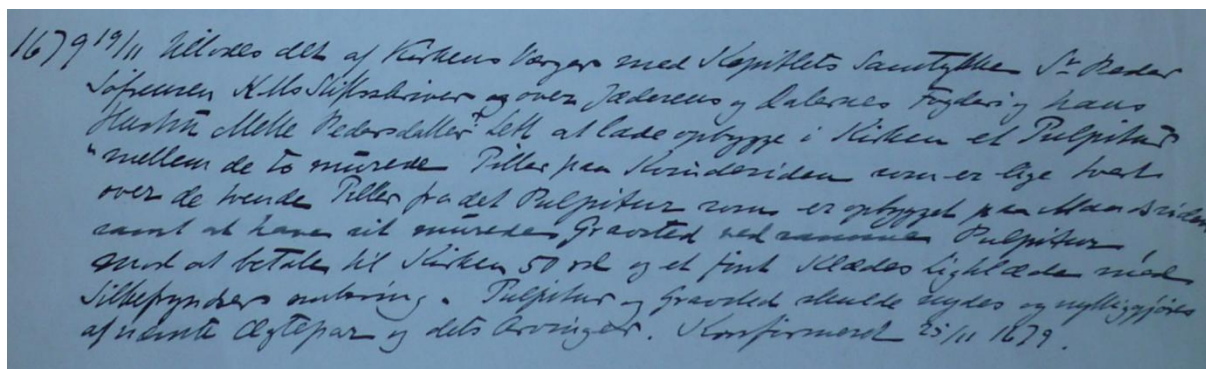 1679 19/11 tilodes det af Kirkens Værger med Kapitlets Samtykke Sr Peder
Söfrensen K. Ms Stiftsskriver og over Jæderens og Dalernes Fogderi og hans
Hustru Mette Pedersdatter at lade opbygge i Kirken et Pulpitur
"mellem de to murede Piller paa Kvindesiden som er lige tvert
over de tvende Piller fra det Pulpitur som er opbygget paa Mandssiden
samt at have sit murede Gravsted ved samme Pulpitur
mod at betale til Kirken 50 rd og et fint Klædes Ligklæde med
Silkefryndser omkring. Pulpitur og Gravsted skulde nydes og nyttiggjøres
af nævnte Ægtepar og dets Arvinger. Konfirmeret 25/11 1679.